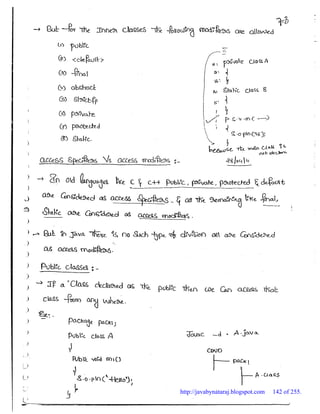 78
→ But for the Inner Classes the following modifiers are allowed
(1) public
(2) <default>
(3) final
(4) abstract
(5) strictfp
(6) private
(7) protected
(8) static.
private class A
{
static class B
{
p s v m( — )
{
S.o.pln(
because the main class is
access specifiers Vs access modifiers :-
→ In old languages like C & C++ public, private, protected & default
are Considered as access specifiers, & all the remaining like final,
static are Considered as access modifiers.
→ But in Java There is no such type of division all are Considered
as access modifiers.
Public classes :-
→ If a 'Class declared as the public then we can access that
class from any where.
Ex:-
package pack1;
public class A
{
public void m1()
{
S.o.pln("Hello");
}
}
Javac -d . A.java
CWD
pack1
A.class
http://javabynataraj.blogspot.com 142 of 255.